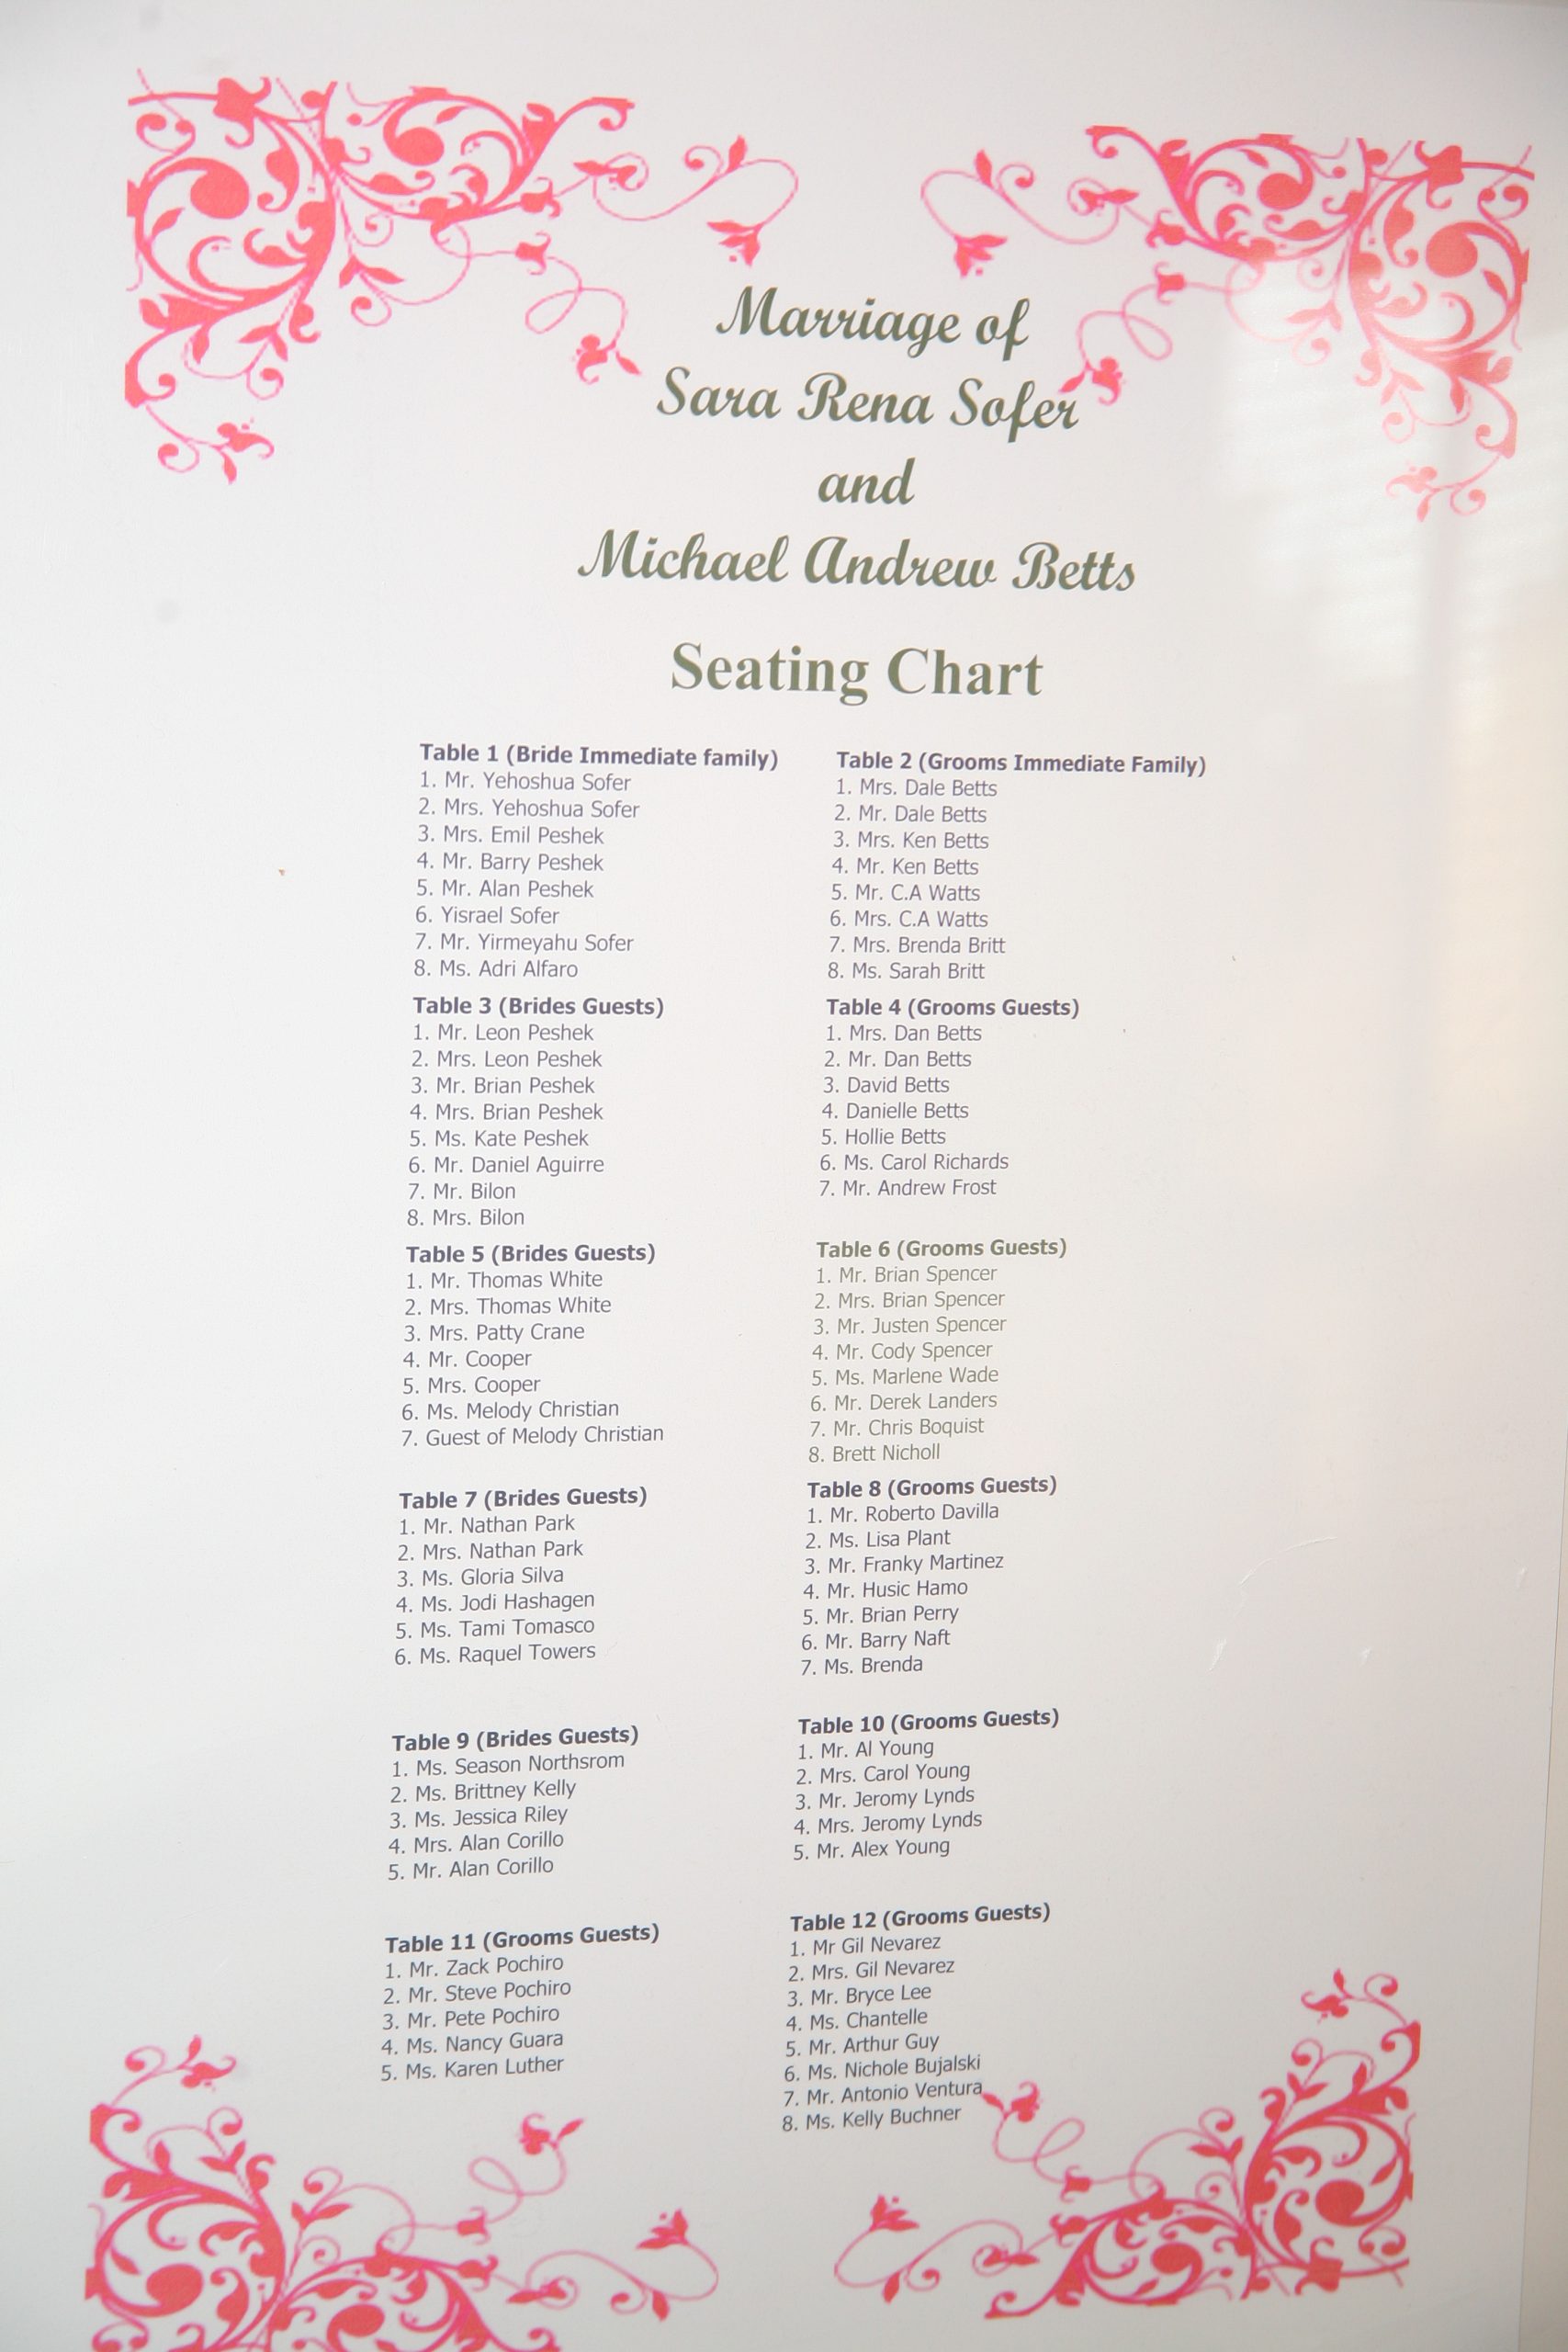 Marriage of
Sara Rena Sofer
and
Michael Andrew Betts
Seating Chart
Table 1 (Bride Immediate family)
1. Mr. Yehoshua Sofer
2. Mrs. Yehoshua Sofer
3. Mrs. Emil Peshek
4. Mr. Barry Peshek
5. Mr. Alan Peshek
6. Yisrael Sofer
7. Mr. Yirmeyahu Sofer
8. Ms. Adri Alfaro
Table 2 (Grooms Immediate Family)
1. Mrs. Dale Betts
2. Mr. Dale Betts
3. Mrs. Ken Betts
4. Mr. Ken Betts
5. Mr. C.A Watts
6. Mrs. C.A Watts
7. Mrs. Brenda Britt
8. Ms. Sarah Britt
Table 3 (Brides Guests)
1. Mr. Leon Peshek
2. Mrs. Leon Peshek
3. Mr. Brian Peshek
4. Mrs. Brian Peshek
5. Ms. Kate Peshek
6. Mr. Daniel Aguirre
7. Mr. Bilon
8. Mrs. Bilon
Table 4 (Grooms Guests)
1. Mrs. Dan Betts
2. Mr. Dan Betts
3. David Betts
4. Danielle Betts
5. Hollie Betts
6. Ms. Carol Richards
7. Mr. Andrew Frost
Table 5 (Brides Guests)
1. Mr. Thomas White
2. Mrs. Thomas White
3. Mrs. Patty Crane
4. Mr. Cooper
5. Mrs. Cooper
6. Ms. Melody Christian
7. Guest of Melody Christian
Table 6 (Grooms Guests)
1. Mr. Brian Spencer
2. Mrs. Brian Spencer
3. Mr. Justen Spencer
4. Mr. Cody Spencer
5. Ms. Marlene Wade
6. Mr. Derek Landers
7. Mr. Chris Boquist
8. Brett Nicholl
Table 7 (Brides Guests)
1. Mr. Nathan Park
2. Mrs. Nathan Park
3. Ms. Gloria Silva
4. Ms. Jodi Hashagen
5. Ms. Tami Tomasco
6. Ms. Raquel Towers
Table 8 (Grooms Guests)
1. Mr. Roberto Davilla
2. Ms. Lisa Plant
3. Mr. Franky Martinez
4. Mr. Husic Hamo
5. Mr. Brian Perry
6. Mr. Barry Naft
7. Ms. Brenda
Table 9 (Brides Guests)
1. Ms. Season Northsrom
2. Ms. Brittney Kelly
3. Ms. Jessica Riley
4. Mrs. Alan Corillo
5. Mr. Alan Corillo
Table 10 (Grooms Guests)
1. Mr. Al Young
2. Mrs. Carol Young
3. Mr. Jeromy Lynds
4. Mrs. Jeromy Lynds
5. Mr. Alex Young
Table 11 (Grooms Guests)
1. Mr. Zack Pochiro
2. Mr. Steve Pochiro
3. Mr. Pete Pochiro
4. Ms. Nancy Guara
5. Ms. Karen Luther
Table 12 (Grooms Guests)
1. Mr Gil Nevarez
2. Mrs. Gil Nevarez
3. Mr. Bryce Lee
4. Ms. Chantelle
5. Mr. Arthur Guy
6. Ms. Nichole Bujalski
7. Mr. Antonio Ventura
8. Ms. Kelly Buchner